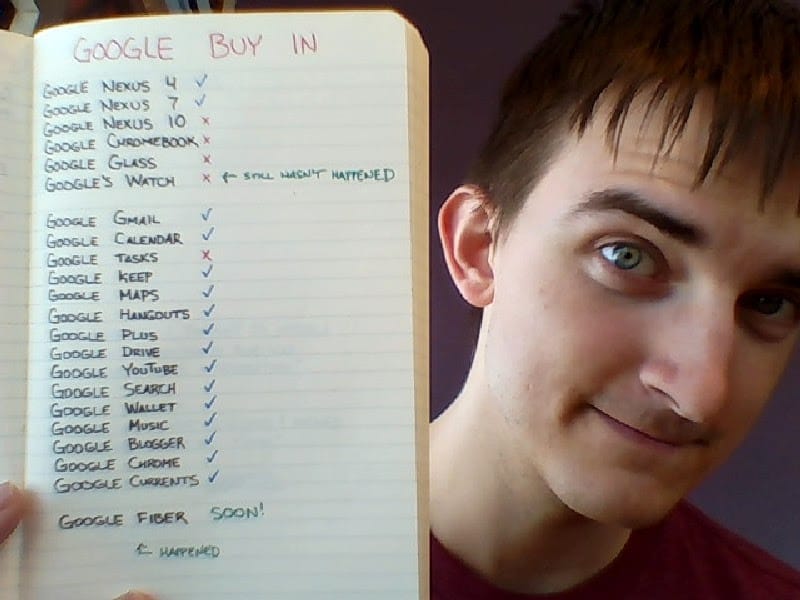 GOOGLE BUY IN
GOOGLE NEXUS 4 ✓
GOOGLE NEXUS 7 ✓
GOOGLE NEXUS 10 ×
GOOGLE CHROMEBOOK ×
GOOGLE GLASS ×
GOOGLE'S WATCH × ← STILL HASN'T HAPPENED
GOOGLE GMAIL ✓
GOOGLE CALENDAR ✓
GOOGLE TASKS ×
GOOGLE KEEP ✓
GOOGLE MAPS ✓
GOOGLE HANGOUTS ✓
GOOGLE PLUS ✓
GOOGLE DRIVE ✓
GOOGLE YOUTUBE ✓
GOOGLE SEARCH ✓
GOOGLE WALLET ✓
GOOGLE MUSIC ✓
GOOGLE BLOGGER ✓
GOOGLE CHROME ✓
GOOGLE CURRENTS ✓
GOOGLE FIBER SOON!
← HAPPENED